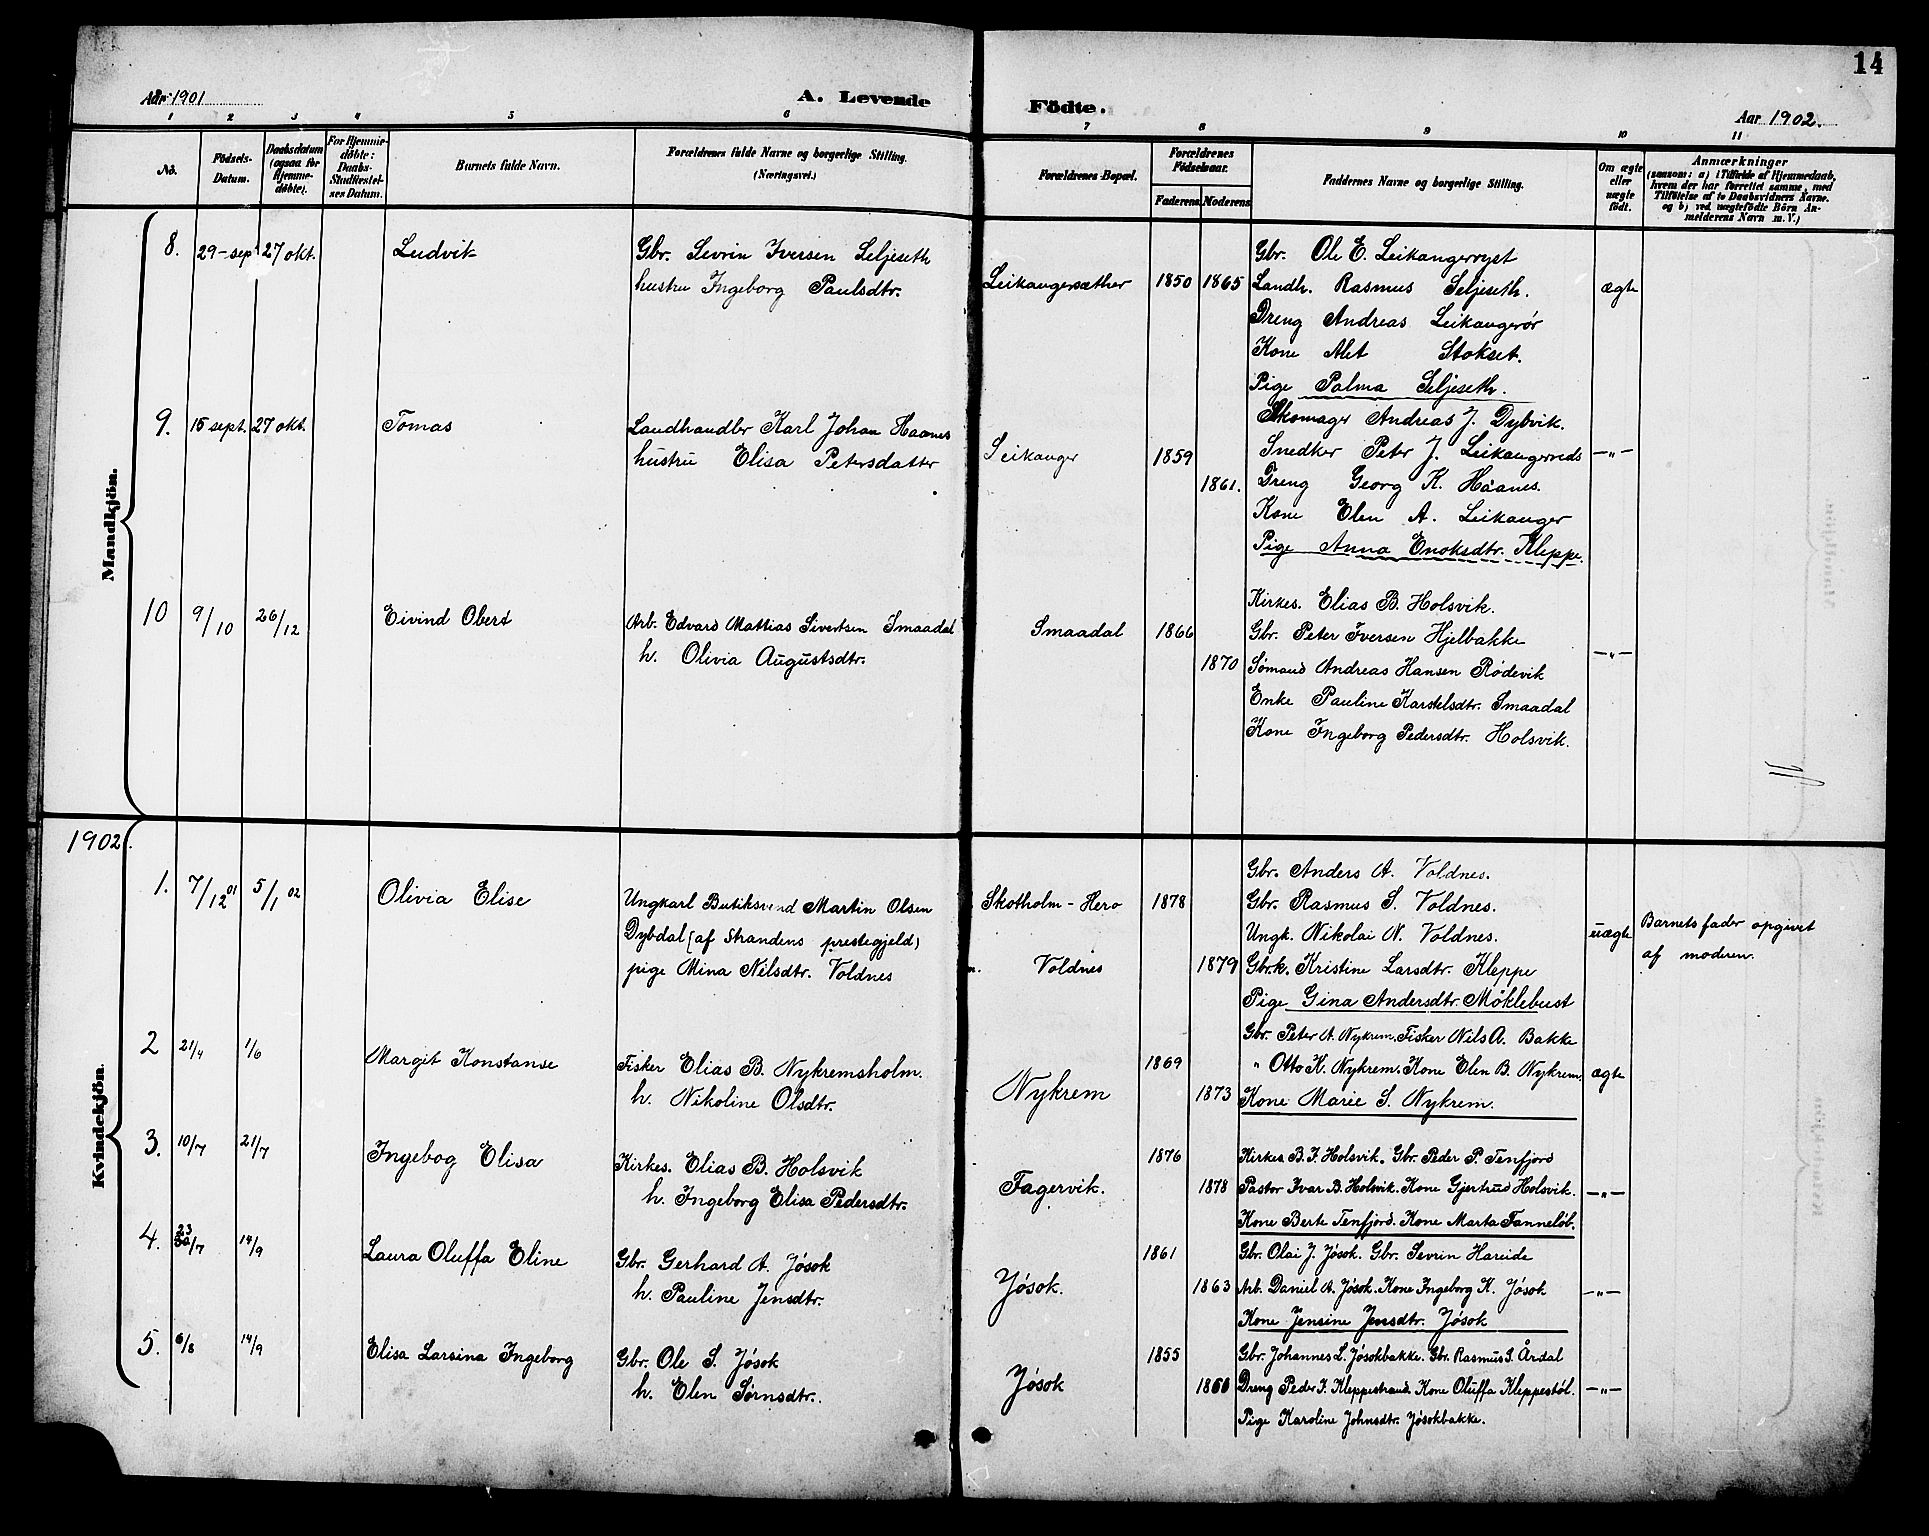 14
Aar 1901
A. Levende
Födte.
Aar 1902.
1 2 3 4 5 6 7 8 9 10 11
No.
Födsels-
Datum.
Daabsdatum
(ogsaa for
Hjemme-
döbte).
For Hjemme-
döbte:
Daabs-
Stadfæstel-
ses Datum.
Barnets fulde Navn.
Forældrenes fulde Navne og borgerlige Stilling.
(Næringsvei.)
Forældrenes Bopæl.
Forældrenes
Födselsaar.
Faderens Moderens
Faddernes Navne og borgerlige Stilling.
Om ægte
eller
uægte
födt.
Anmærkninger
(saasom: a) i Tilfælde af Hjemmedaab,
hvem der har forrettet samme, med
Tilföielse af to Daabsvidners Navne.
og b) ved uægtefödte Börn An-
melderens Navn m. V.)
Mandkjön.
8. 29-sep 27 okt. Ludvik
Gbr. Sevrin Iversen Seljeseth
hustru Ingeborg Paulsdtr.
Leikangersæther 1850 1865
Gbr. Ole E. Leikangerryst
Landh. Rasmus Seljeseth.
Dreng Andreas Leikangerör
Kone Alet Stokset.
Pige Palma Seljeseth.
ægte
9. 15 sept. 27 okt. Tomas
Landhandler Karl Johan Haanes
hustru Elisa Petersdatter
Leikanger 1859 1861.
Skomager Andreas J. Dybvik.
Snedker Peter J. Leikangernes
Dreng Georg K. Håanes.
Kone Elen A. Leikanger
Pige Anna Enoksdtr. Kleppe.
—"—
10 9/10 26/12 Eivind Obert
Arb. Edvard Mattias Sivertsen Smaadal
h. Olivia Augustsdtr.
Smaadal 1866 1870
Kirkes. Elias B. Holsvik.
Gbr. Peter Iversen Hjelbakke
Sømand Andreas Hansen Rødevik
Enke Pauline Karstelsdtr. Smaadal
Kone Ingeborg Pedersdtr. Holsvik.
—"—
1902.
Kvindekjön.
1. 7/12 01 5/1 02 Olivia Elise
Ungkarl Butiksvend Martin Olsen
Dybdal (af Strandens prestegjeld)
pige Mina Nilsdtr. Voldnes
Skotholm - Herø 1878
Voldnes 1879
Gbr. Anders A. Voldnes.
Gbr. Rasmus S. Voldnes.
Ungk. Nikolai N. Voldnes.
Gbr.k. Kristine Larsdtr. Kleppe
Pige Gina Andersdtr. Møklebust
uægte
Barnets fader opgivet
af moderen.
2 21/4 1/6 Margit Konstanse
Fisker Elias B. Nykremsholm.
h. Nikoline Olsdtr.
Nykrem 1869 1873
Gbr. Peter A. Nykrem. Fisker Nils A. Bakke
" Otto K. Nykrem. Kone Elen B. Nykrem.
Kone Marie S. Nykrem.
ægte
3. 10/7 21/7 Ingebog Elisa
Kirkes. Elias B. Holsvik
h. Ingeborg Elisa Pedersdtr.
Fagervik. 1876 1878
Kirkes. B. I. Holsvik. Gbr. Peder P. Tenfjord
Pastor Ivar B. Holsvik. Kone Gjertrud Holsvik.
Kone Berte Tenfjord. Kone Marta Tanneløb.
—"—
4. 23/7 14/9 Laura Oluffa Eline
Gbr. Gerhard A. Jøsok
h. Pauline Jensdtr.
Jøsok. 1861 1863
Gbr. Olai J. Jøsok. Gbr. Sevrin Hareide
Arb. Daniel A. Jøsok. Kone Ingeborg K. Jøsok
Kone Jensine Jensdtr. Jøsok
—"—
5. 6/8 14/9 Elisa Larsina Ingeborg
Gbr. Ole S. Jøsok
h. Elen Sørnsdtr.
Jøsok 1855 1860
Gbr. Johannes L. Jøsokbakke. Gbr. Rasmus S. Årdal
Dreng Peder I. Kleppestrand. Kone Oluffa Kleppestøl.
Pige Karoline Johnsdtr. Jøsokbakke.
—"—